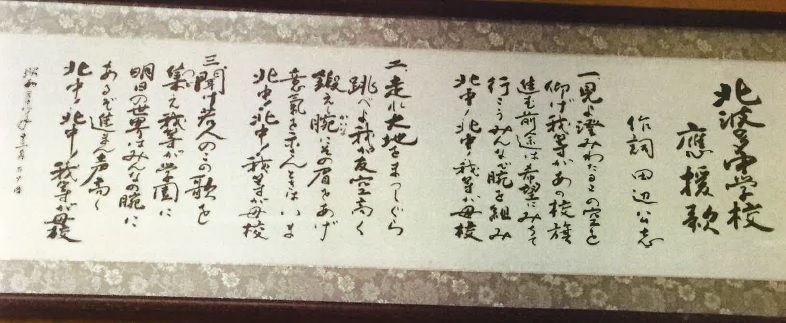 北波多中学校
應援歌
作詞 田辺公志
一、見よ澄みわたるとの空と
仰げ我等があの校旗
進む前途は希望にみちて
行こうみんなで腕を組み
北中！北中！我等が母校
二、走れ大地をまっしぐら
跳べよ我が友空高く
鍛えし腕にその眉をあげ
意氣を示さんときはいま
北中！北中！我等が母校
三、聞け若人のこの歌を
集え我等が学園に
明日の世界はみんなの腕に
あるぞ進まん声高く
北中！北中！我等が母校
昭和